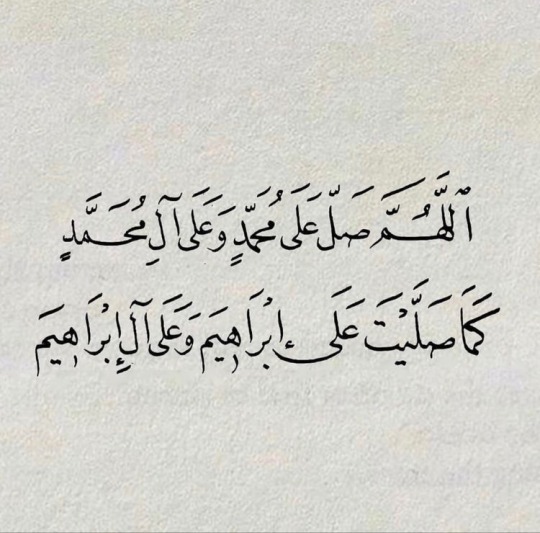 ٱللَّهُمَّ صَلِّ عَلَى مُحَمَّدٍ وَعَلَى آلِ مُحَمَّدٍ
كَمَا صَلَّيْتَ عَلَى إِبْرَاهِيمَ وَعَلَى آلِ إِبْرَاهِيمَ